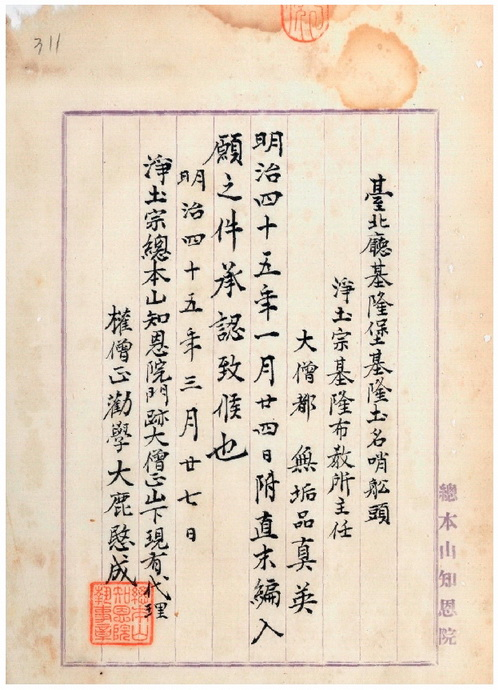 311
臺北廳基隆堡基隆土名哨舩頭
淨土宗基隆布教所主任
大僧都 無垢品真英
明治四十五年一月廿四日附直末編入
願之件承認致候也
明治四十五年三月廿七日
淨土宗總本山知恩院門跡大僧正山下現有代理
權僧正勸學大鹿愍成
總本山知恩院
總本山知恩院執事章